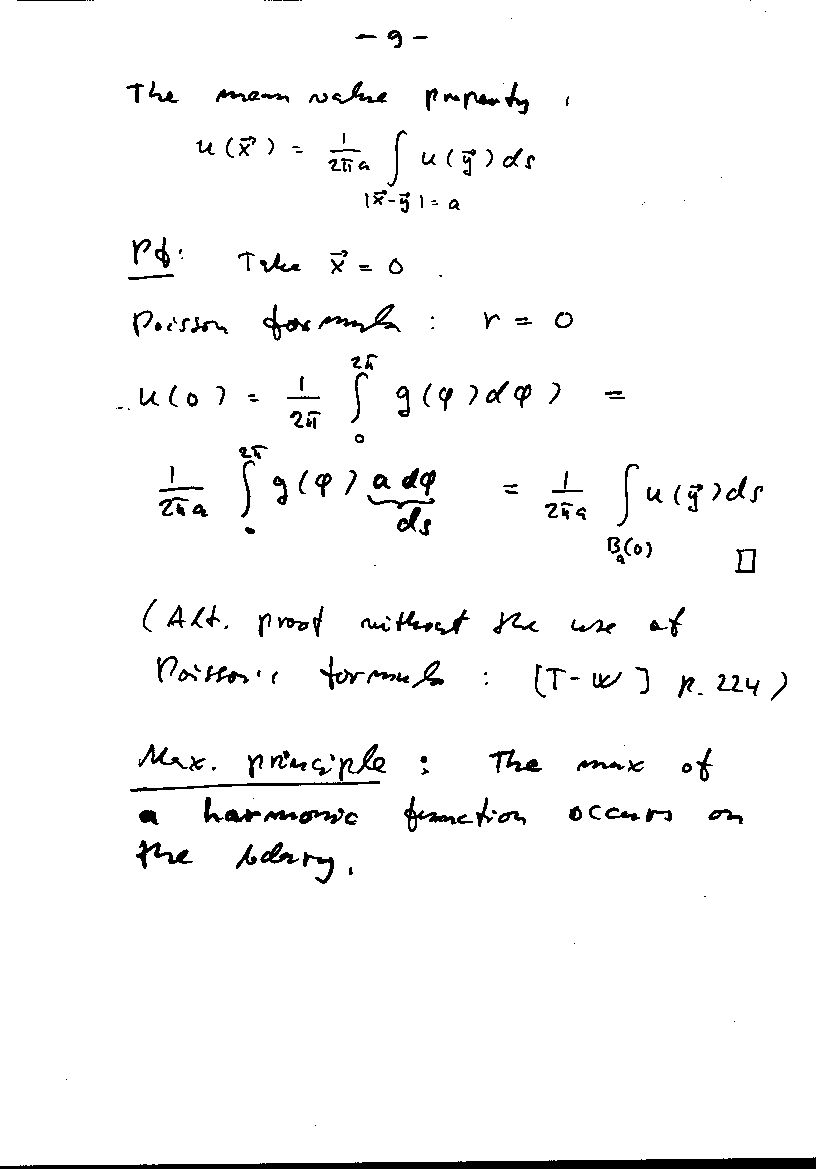 - 9 -
The mean value property,
u(x⃗) = 1/(2πa) ∫_{|x⃗-y⃗|=a} u(y⃗) ds
Pf: Take x⃗ = 0.
Poisson formula : r = 0
u(0) = 1/(2π) ∫_0^{2π} g(φ) dφ) =
1/(2πa) ∫_0^{2π} g(φ) a dφ = 1/(2πa) ∫_{B_a(0)} u(y⃗) ds
ds
□
(Alt. proof without the use of
Poisson's formula : [T-W] p. 224)
Max. principle : The max of
a harmonic function occurs on
the bdary.